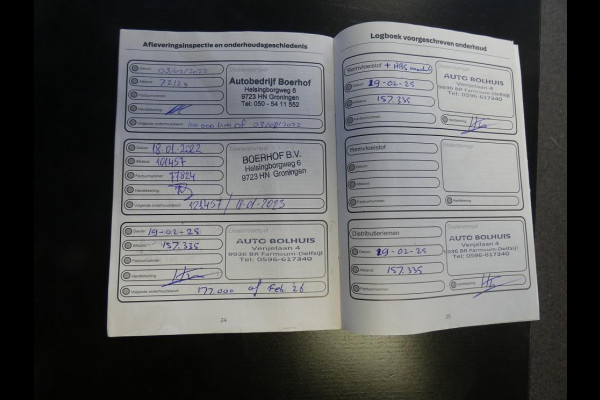 Afleveringsinspectie en onderhoudsgeschiedenis
Datum
Afstand
Factuurnummer
Handtekening
Volgende onderhoudsbeurt
Autobedrijf Boerhof
Helsingborgweg 6
9723 HN Groningen
Tel: 050 - 54 11 552
Datum 18-01-2022
Afstand 101457
Factuurnummer 77824
Handtekening
Volgende onderhoudsbeurt
BOERHOF B.V.
Helsingborgweg 6
9723 HN Groningen
Datum 19-02-25
Afstand 157.335
Factuurnummer
Handtekening
Volgende onderhoudsbeurt 177.000 of Feb. 26
AUTO BOLHUIS
Venjelaan 4
9936 BR Farmsum-Delfzijl
Tel: 0596-617340
24
Logboek voorgeschreven onderhoud
Remvloeistof
Datum 19-02-25
Afstand 157.335
Factuurnummer
Handtekening
AUTO BOLHUIS
Venjelaan 4
9936 BR Farmsum-Delfzijl
Tel: 0596-617340
Remvloeistof
Datum
Afstand
Factuurnummer
Handtekening
Distributieriemen
Datum 19-02-25
Afstand 157.335
Factuurnummer
Handtekening
AUTO BOLHUIS
Venjelaan 4
9936 BR Farmsum-Delfzijl
Tel: 0596-617340
25